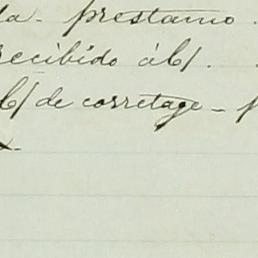 prestamo.
recibido á b/.
b/ de corretage –